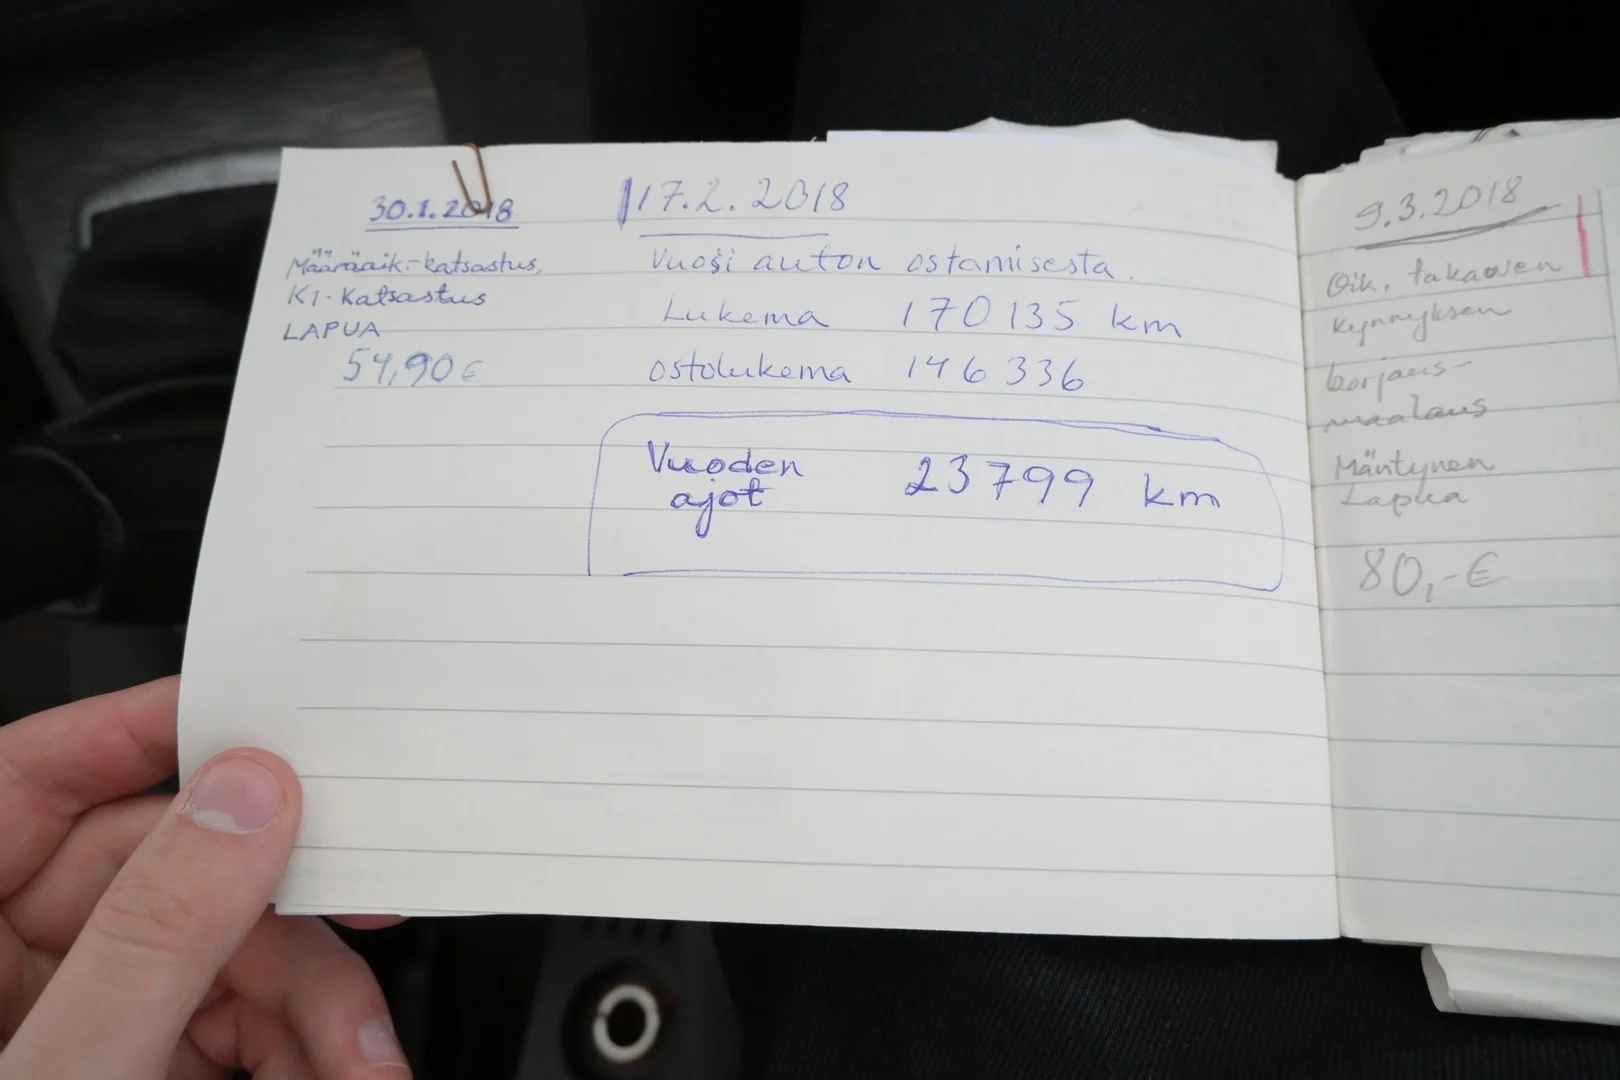 30.1.2018
Määräaik.-katsastus,
K1-Katsastus
LAPUA
54,90 €
17.2.2018
Vuosi auton ostamisesta.
Lukema 170135 km
ostolukema 146336
Vuoden
ajot 23799 km
9.3.2018
Oik. takaoven
kynnyksen
korjaus-
maalaus
Mäntynen
Lapua
80,-€